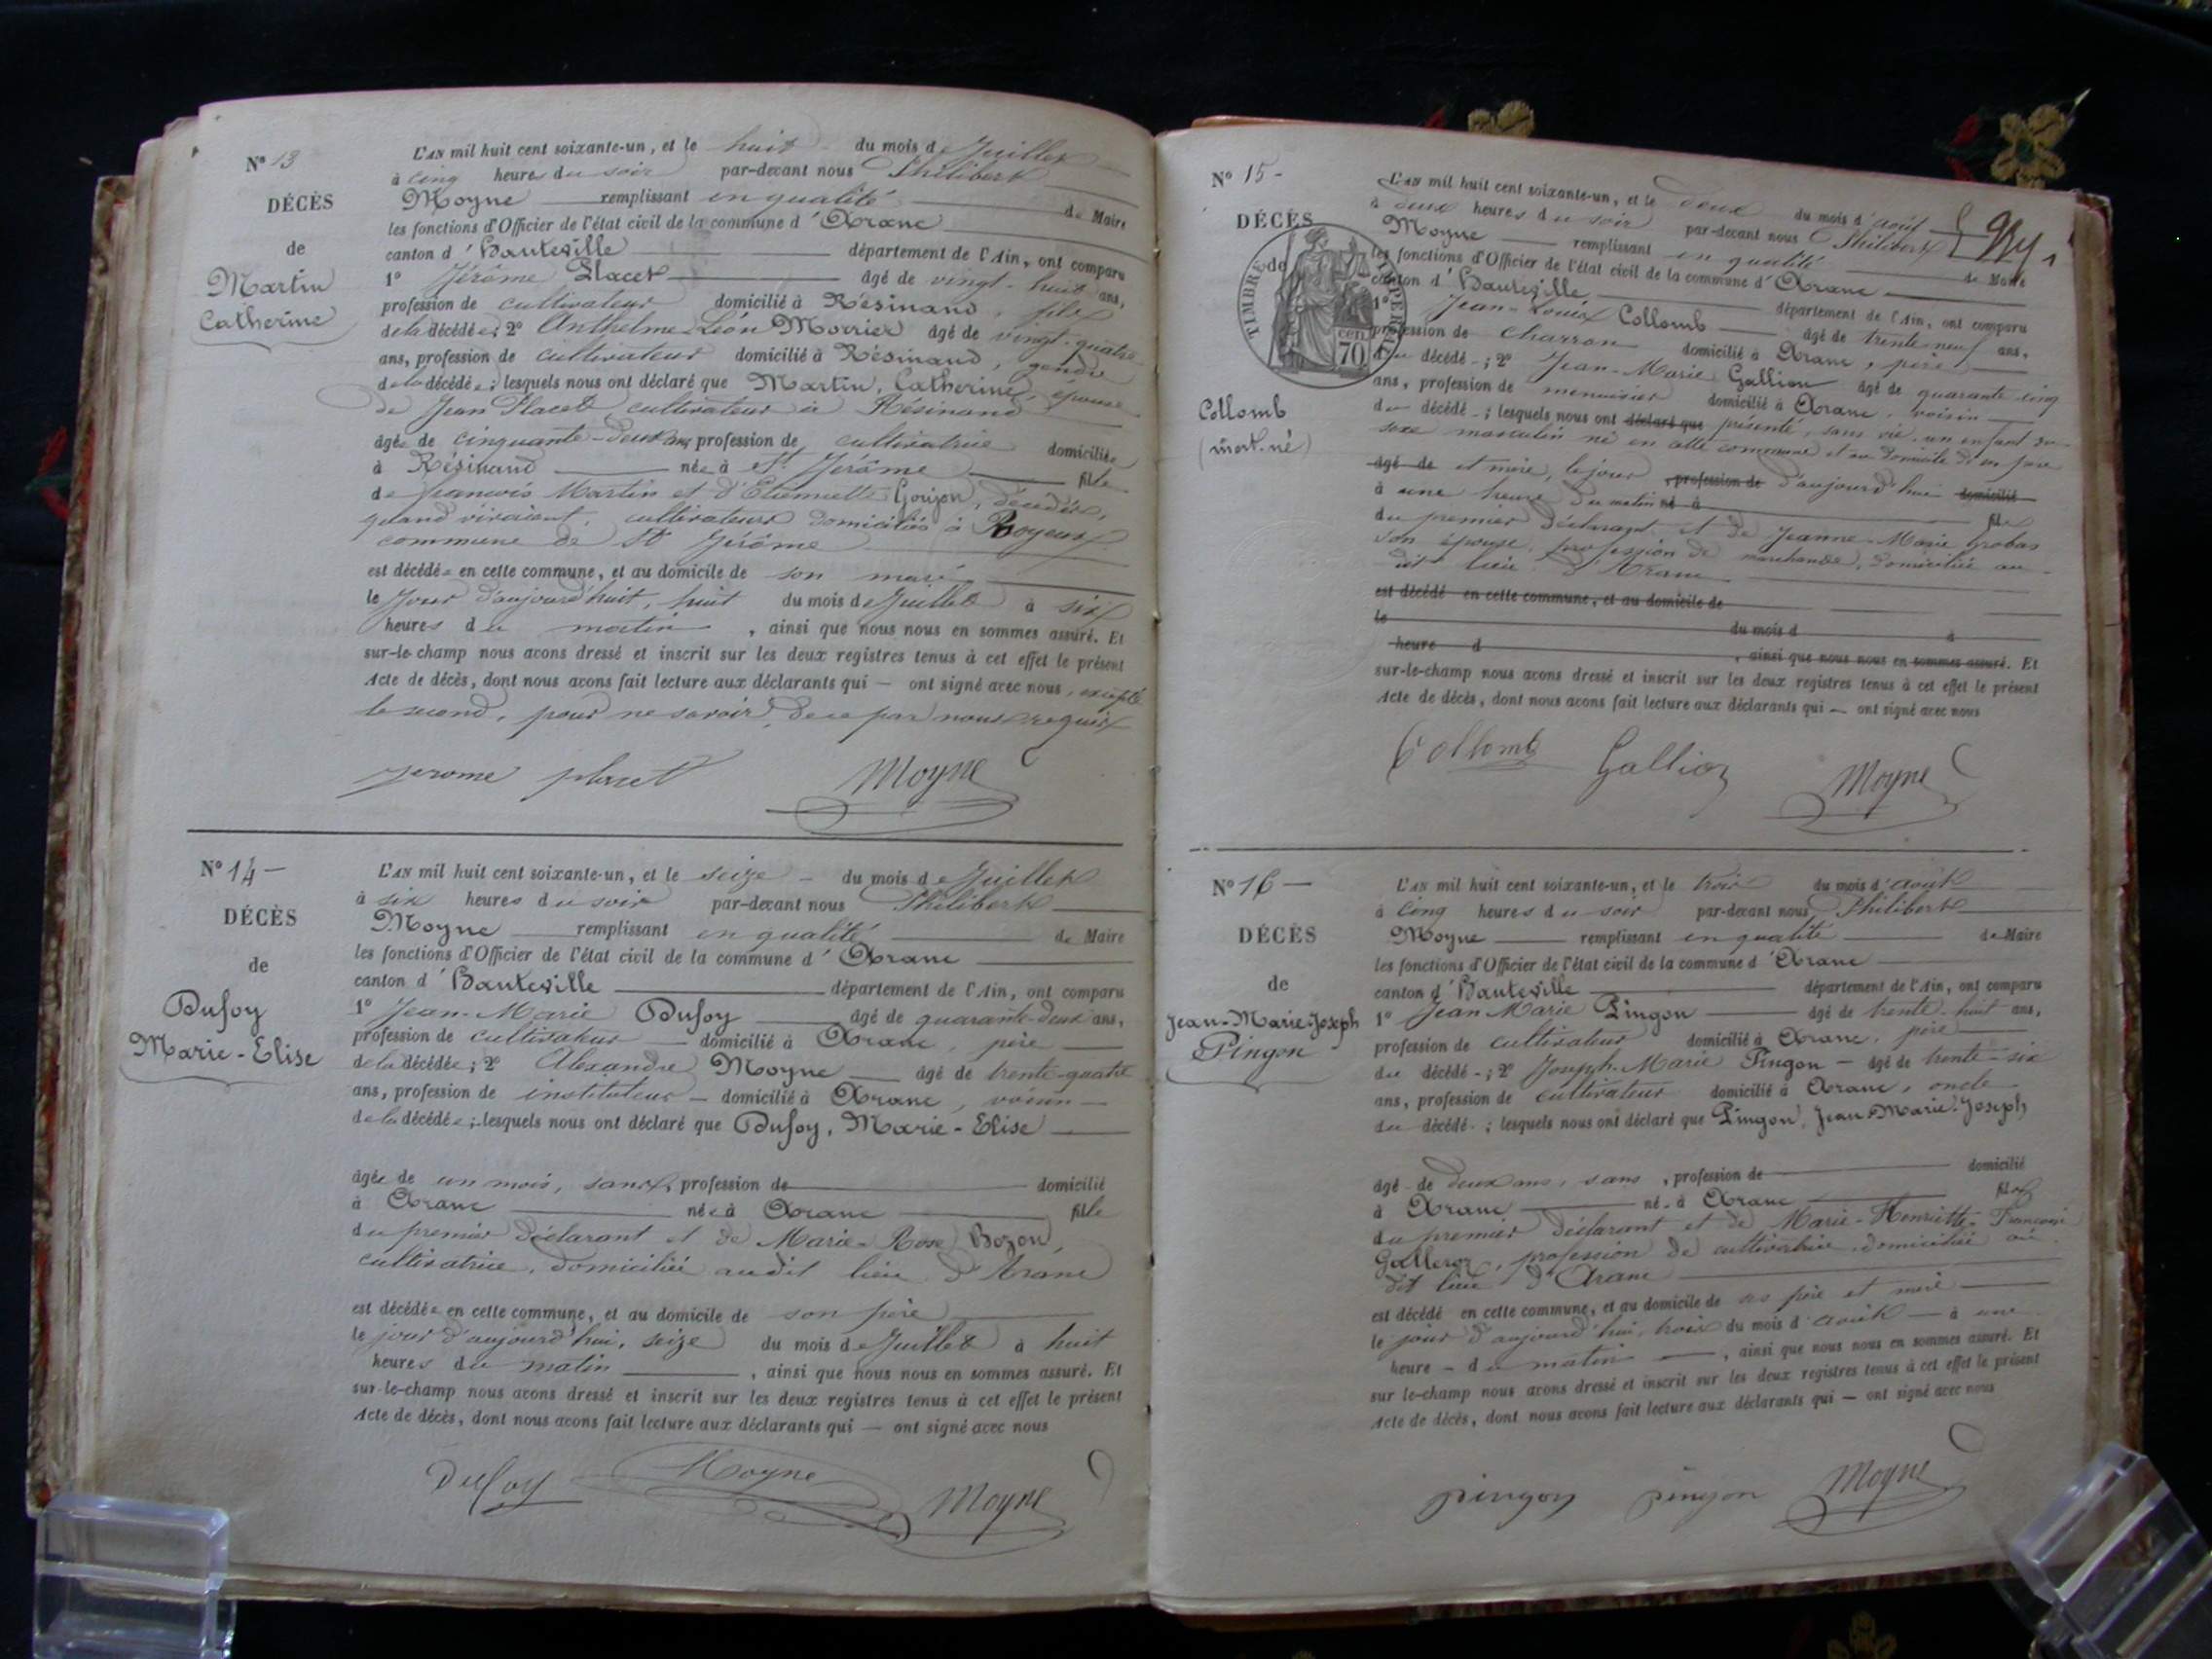 N° 13
DÉCÈS
de
Martin
Catherine
L'AN mil huit cent soixante-un, et le huit du mois de Juillet
à cinq heures du soir par-devant nous Philibert
Moyne remplissant en qualité de Maire
les fonctions d'Officier de l'état civil de la commune d'Aranc
canton d'Hauteville département de l'Ain, ont comparu
1° Jérôme Placet âgé de vingt-huit ans,
profession de cultivateur domicilié à Résinand, fils
de la décédée; 2° Anthelme-Léon Morrier âgé de vingt-quatre
ans, profession de cultivateur domicilié à Résinand, gendre
de la décédée; lesquels nous ont déclaré que Martin, Catherine, épouse
de Jean Placet, cultivateur à Résinand
âgée de cinquante-deux ans, profession de cultivatrice domiciliée
à Résinand née à St Jérôme fille
de francois Martin et d'Etiennette Goujon, décédés,
quand vivaient, cultivateurs domiciliés à
commune de St Jérôme
est décédée en cette commune, et au domicile de son mari
le jour d'aujourd'huit, huit du mois de Juillet à six
heures du matin, ainsi que nous nous en sommes assuré. Et
sur-le-champ nous avons dressé et inscrit sur les deux registres tenus à cet effet le présent
Acte de décès, dont nous avons fait lecture aux déclarants qui — ont signé avec nous, excepté
le second, pour ne savoir, de ce par nous requis
jerome placet Moyne
N° 14 —
DÉCÈS
de
Dufoy
Marie-Elise
L'AN mil huit cent soixante-un, et le seize du mois de Juillet
à six heures du soir par-devant nous Philibert
Moyne remplissant en qualité de Maire
les fonctions d'Officier de l'état civil de la commune d'Aranc
canton d'Hauteville département de l'Ain, ont comparu
1° Jean-Marie Dufoy âgé de quarante-deux ans,
profession de cultivateur domicilié à Aranc, père
de la décédée; 2° Alexandre Moyne âgé de trente-quatre
ans, profession de instituteur — domicilié à Aranc, voisin —
de la décédée; lesquels nous ont déclaré que Dufoy, Marie-Elise
âgée de un mois, sans, profession de domicilié
à Aranc née à Aranc fille
du premier déclarant et de Marie-Rose Bozon,
cultivatrice, domiciliée audit lieu d'Aranc
est décédée en cette commune, et au domicile de son père
le jour d'aujourd'hui, seize du mois de Juillet à huit
heures du matin, ainsi que nous nous en sommes assuré. Et
sur-le-champ nous avons dressé et inscrit sur les deux registres tenus à cet effet le présent
Acte de décès, dont nous avons fait lecture aux déclarants qui — ont signé avec nous
Dufoy Moyne Moyne
N° 15 -
DÉCÈS
TIMBRE IMPÉRIAL
70 cen
Collomb
(mort-né)
L'AN mil huit cent soixante-un, et le deux du mois d'août
à deux heures du soir par-devant nous Philibert
Moyne remplissant en qualité de Maire
les fonctions d'Officier de l'état civil de la commune d'Aranc
canton d'Hauteville département de l'Ain, ont comparu
1° Jean-Louis Collomb âgé de trente neuf ans,
profession de charron domicilié à Aranc, père
du décédé; 2° Jean-Marie Gallion âgé de quarante-cinq
ans, profession de menuisier domicilié à Aranc, voisin
du décédé; lesquels nous ont déclaré que présenté, sans vie, un enfant du
sexe masculin né en cette commune et au domicile de ses père
âgé de et mère, le jour, profession de d'aujourd'hui domicilié
à une heure du matin né à fils
du premier déclarant et de Jeanne-Marie Grobas
son épouse, profession de marchande, domiciliée au
dit lieu d'Aranc
est décédé en cette commune, et au domicile de
le du mois d à
heure d, ainsi que nous nous en sommes assuré. Et
sur-le-champ nous avons dressé et inscrit sur les deux registres tenus à cet effet le présent
Acte de décès, dont nous avons fait lecture aux déclarants qui — ont signé avec nous
Collomb Gallion Moyne
N° 16 —
DÉCÈS
de
Jean-Marie-Joseph
Pingon
L'AN mil huit cent soixante-un, et le trois du mois d'août
à cinq heures du soir par-devant nous Philibert
Moyne remplissant en qualité de Maire
les fonctions d'Officier de l'état civil de la commune d'Aranc
canton d'Hauteville département de l'Ain, ont comparu
1° Jean Marie Pingon âgé de trente-huit ans,
profession de cultivateur domicilié à Aranc, père
du décédé; 2° Joseph-Marie Pingon — âgé de trente-six
ans, profession de cultivateur domicilié à Aranc, oncle
du décédé; lesquels nous ont déclaré que Pingon, Jean-Marie-Joseph
âgé de deux ans, sans, profession de domicilié
à Aranc né à Aranc fils
du premier déclarant et de Marie-Henriette-Francoise
, profession de cultivatrice, domiciliée au
dit lieu d'Aranc
est décédé en cette commune, et au domicile de ses père et mère
le jour d'aujourd'hui, trois du mois d'août — à une
heure — du matin —, ainsi que nous nous en sommes assuré. Et
sur-le-champ nous avons dressé et inscrit sur les deux registres tenus à cet effet le présent
Acte de décès, dont nous avons fait lecture aux déclarants qui — ont signé avec nous
pingon pingon Moyne